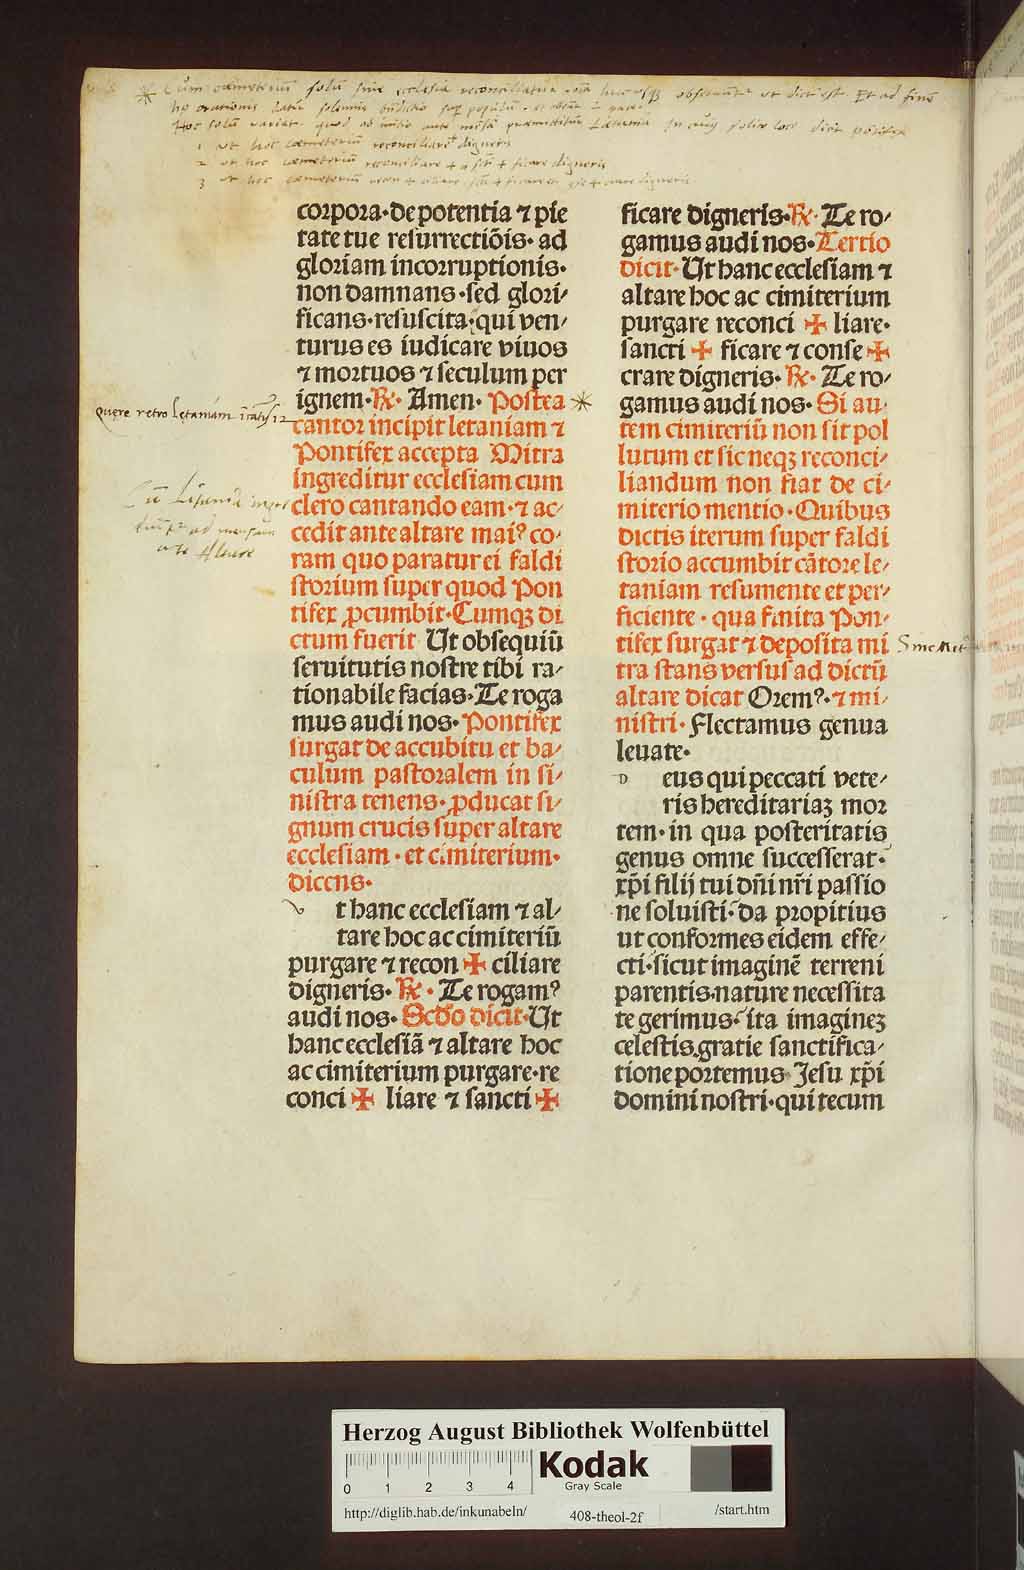 Cum cœmeterium solum sine ecclesia reconciliatur
ut dict est. Et ad finem
Hoc solum variat. quod ad initio ante missam præmittitur Lætania
1 ut hoc cœmeterium reconciliare digneris
2 ut hoc cœmeterium reconciliare + sct + ficare digneris
3 ut hoc cœmeterium
corpora·de potentia ⁊ pie
tate tue resurrectiõis· ad
gloriam incorruptionis·
non damnans·sed glori⸗
ficans·resuscita;qui ven⸗
turus es iudicare viuos
⁊ mortuos ⁊ seculum per
ignem·℟· Amen· Postea
cantor incipit letaniam ⁊
Pontifex accepta Mitra
ingreditur ecclesiam cum
clero cantando eam·⁊ ac⸗
cedit ante altare maiꝰ co⸗
ram quo paratur ei faldi
storium super quod Pon
tifex ꝓcumbit·Cumqꝫ di
ctum fuerit Ut obsequiũ
seruitutis nostre tibi ra⸗
tionabile facias·Te roga
mus audi nos·Pontifex
surgat de accubitu et ba⸗
culum pastoralem in si⸗
nistra tenens·ꝓducat si⸗
gnum crucis super altare
ecclesiam·et cimiterium·
dicens·
v t hanc ecclesiam ⁊ al⸗
tare hoc ac cimiteriũ
purgare ⁊ recon ✠ ciliare
digneris· ℟· Te rogamꝰ
audi nos· Scd̃o dicit·Ut
hanc ecclesiã ⁊ altare hoc
ac cimiterium purgare·re
conci ✠ liare ⁊ sancti ✠
Quere retro letaniam
ante Altare
ficare digneris·℟· Te ro⸗
gamus audi nos·Tertio
dicit·Ut hanc ecclesiam ⁊
altare hoc ac cimiterium
purgare reconci ✠ liare·
sancti ✠ ficare ⁊ conse ✠
crare digneris· ℟· Te ro⸗
gamus audi nos·Si au⸗
tem cimiteriũ non sit pol
lutum et sic neqꝫ reconci⸗
liandum non fiat de ci⸗
miterio mentio·Quibus
dictis iterum super faldi
storio accumbit cãtore le⸗
taniam resumente et per⸗
ficiente·qua finita Pon⸗
tifex surgat ⁊ deposita mi
tra stans versus ad dictũ
altare dicat Oremꝰ·⁊ mi⸗
nistri·Flectamus genua
leuate·
D eus qui peccati vete⸗
ris hereditariaꝫ mor
tem·in qua posteritatis
genus omne successerat·
xp̃i filij tui dñi nr̃i passio
ne soluisti·da propitius
ut conformes eidem effe⸗
cti·sicut imaginẽ terreni
parentis·nature necessita
te gerimus·ita imagineꝫ
celestis·gratie sanctifica⸗
tione portemus Jesu xp̃i
domini nostri·qui tecum
Sine Mit
Herzog August Bibliothek Wolfenbüttel
0 1 2 3 4
Kodak
Gray Scale
http://diglib.hab.de/inkunabeln/ 408-theol-2f /start.htm